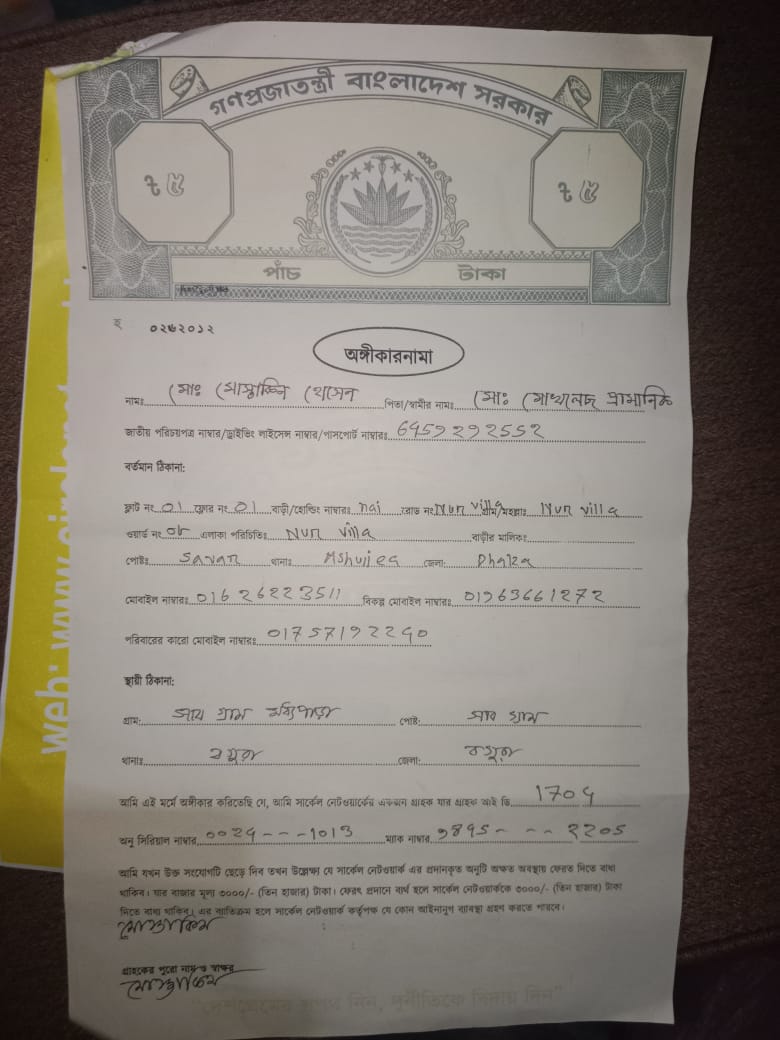 গণপ্রজাতন্ত্রী বাংলাদেশ সরকার
৳ ৫ ৳ ৫
পাঁচ টাকা
web: www.circlenet
০২৬২০১২
অঙ্গীকারনামা
নামঃ মোঃ মোস্তাকিন হোসেন পিতা/স্বামীর নামঃ মোঃ মোখলেছ প্রামানিক
জাতীয় পরিচয়পত্র নাম্বার/ড্রাইভিং লাইসেন্স নাম্বার/পাসপোর্ট নাম্বারঃ 6459292552
বর্তমান ঠিকানা:
ফ্লাট নং 01 ফ্লোর নং 01 বাড়ী/হোল্ডিং নাম্বারঃ nai রোড নং Nur villa গ্রাম/মহল্লাঃ Nur villa
ওয়ার্ড নং 0৮ এলাকা পরিচিতিঃ Nur villa বাড়ীর মালিকঃ
পোষ্টঃ Savar থানাঃ Ashuliea জেলা: Dhaka
মোবাইল নাম্বারঃ 01626223511 বিকল্প মোবাইল নাম্বারঃ 01963661272
পরিবারের কারো মোবাইল নাম্বারঃ 01757192290
স্থায়ী ঠিকানা:
গ্রাম: সাব গ্রাম মধ্যপাড়া পোষ্ট: সাব গ্রাম
থানাঃ বগুড়া জেলা: বগুড়া
আমি এই মর্মে অঙ্গীকার করিতেছি যে, আমি সার্কেল নেটওয়ার্কের একজন গ্রাহক যার গ্রাহক আই ডি 1704
অনু সিরিয়াল নাম্বার 0029---1013 ম্যাক নাম্বার 9895---2205
আমি যখন উক্ত সংযোগটি ছেড়ে দিব তখন উল্লেক্ষ্য যে সার্কেল নেটওয়ার্ক এর প্রদানকৃত অনুটি অক্ষত অবস্থায় ফেরত দিতে বাধ্য
থাকিব। যার বাজার মূল্য ৩০০০/- (তিন হাজার) টাকা। ফেরৎ প্রদানে ব্যর্থ হলে সার্কেল নেটওয়ার্ককে ৩০০০/- (তিন হাজার) টাকা
দিতে বাধ্য থাকিব। এর ব্যতিক্রম হলে সার্কেল নেটওয়ার্ক কর্তৃপক্ষ যে কোন আইনানুগ ব্যবস্থা গ্রহণ করতে পারবে।
মোস্তাকিম
গ্রাহকের পুরো নাম ও স্বাক্ষর
মোস্তাকিম
"দেশপ্রেমের শপথ নিন, দুর্নীতিকে বিদায় দিন"